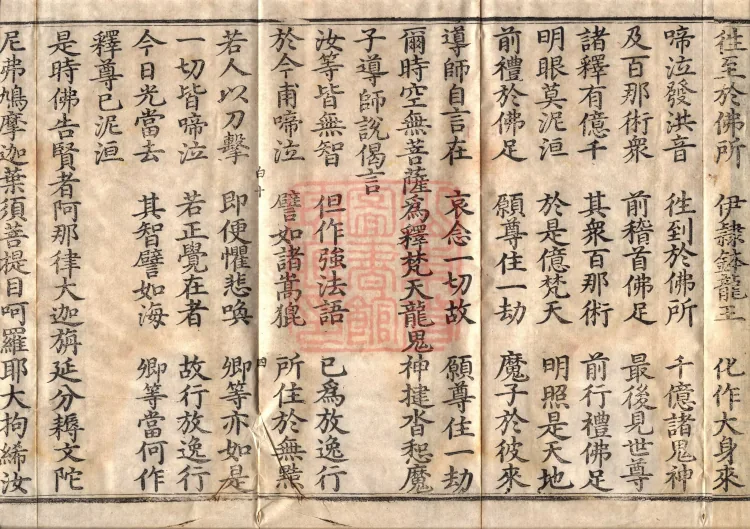 徃至於佛所 伊隷鉢龍王 化作大身來
啼泣發洪音 徃到於佛所 千億諸鬼神
及百那術衆 前稽首佛足 最後見世尊
諸釋有億千 其衆百那術 前行禮佛足
明眼莫泥洹 於是億梵天 明照是天地
前禮於佛足 願尊住一劫 魔子於彼來
導師自言在 哀念一切故 願尊住一劫
爾時空無菩薩爲釋梵天龍鬼神揵沓惒魔
子導師說偈言
汝等皆無智 但作強法語 已爲放逸行
於今甫啼泣 譬如諸嵩猑 所住於無㸃
若人以刀擊 即便懼悲喚 卿等亦如是
一切皆啼泣 若正覺在者 故行放逸行
今日光當去 其智譬如海 卿等當何作
釋尊已泥洹
是時佛告賢者阿那律大迦旃延分耨文陀
尼弗鳩摩迦葉須菩提目呵羅耶大拘絺汝
白十
四